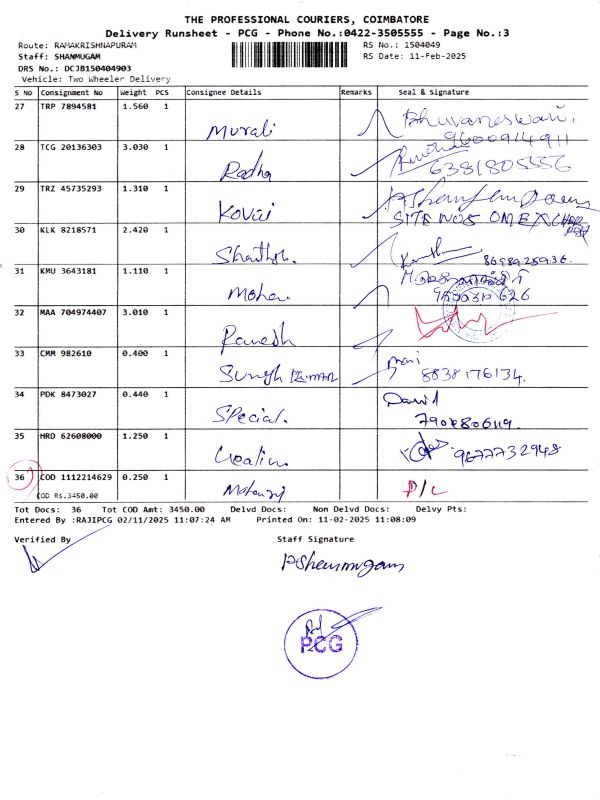 THE PROFESSIONAL COURIERS, COIMBATORE
Delivery Runsheet - PCG - Phone No.:0422-3505555 - Page No.:3
Route: RAMAKRISHNAPURAM RS No.: 1504049
Staff: SHANMUGAM RS Date: 11-Feb-2025
DRS No.: DCJB150404903
Vehicle: Two Wheeler Delivery
S No Consignment No Weight PCS Consignee Details Remarks Seal & Signature
27 TRP 7894581 1.560 1 Murali Bhuvaneswari
9600914911
28 TCG 20136303 3.030 1 Radha
6381805556
29 TRZ 45735293 1.310 1 Kovai
SITE NOS
30 KLK 8218571 2.420 1
31 KMU 3643181 1.110 1 Mohan
32 MAA 704974407 3.010 1 Ramesh
33 CMM 982610 0.400 1 mari
8838176134.
34 PDK 8473027 0.440 1 Special. David
35 HRD 62608000 1.250 1 9677732948
36 COD 1112214629 0.250 1 P/C
COD Rs.3450.00
Tot Docs: 36 Tot COD Amt: 3450.00 Delvd Docs: Non Delvd Docs: Delvy Pts:
Entered By :RAJIPCG 02/11/2025 11:07:24 AM Printed On: 11-02-2025 11:08:09
Verified By Staff Signature
PShanmugam
PCG